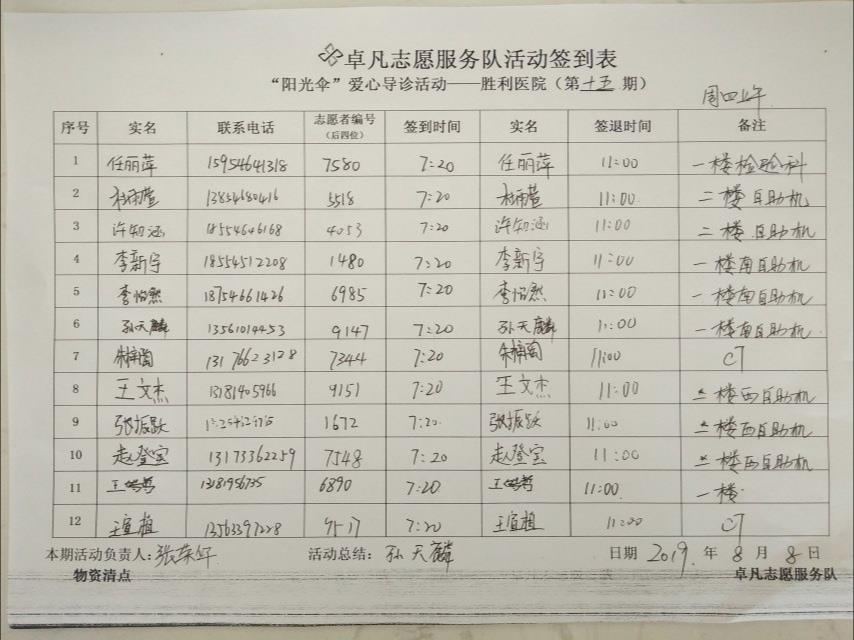 卓凡志愿服务队活动签到表
“阳光伞”爱心导诊活动——胜利医院（第十五期）
周四上午
序号 实名 联系电话 志愿者编号（后四位） 签到时间 实名 签退时间 备注
1 任丽萍 15954641318 7580 7:20 任丽萍 11:00 一楼检验科
2 13854680416 5518 7:20 11:00 二楼自助机
3 许知涵 18554646168 4053 7:20 许知涵 11:00 二楼自助机
4 李新宇 18554512208 1480 7:20 李新宇 11:00 一楼南自助机
5 李怡然 18754661426 6985 7:20 李怡然 11:00 一楼南自助机
6 孙天麟 13561014453 9147 7:20 孙天麟 11:00 一楼南自助机
7 13176623128 7344 7:20 11:00 CT
8 王文杰 13181405966 9151 7:20 王文杰 11:00 二楼西自助机
9 张振跃 1672 7:20 张振跃 11:00 二楼西自助机
10 赵登宝 13173362259 7548 7:20 赵登宝 11:00 二楼西自助机
11 13181956735 6890 7:20 11:00 一楼
12 王宜植 13563397228 7:20 王宜植 11:00 CT
本期活动负责人：张荣华 活动总结：孙天麟 日期 2019年8月8日
物资清点 卓凡志愿服务队